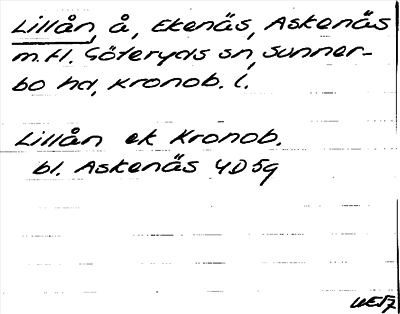 Lillån, å, Ekenäs, Askenäs
m.fl. Göteryds sn, Sunner-
bo hd, Kronob. l.
Lillån ek Kronob.
bl. Askenäs 4D5g